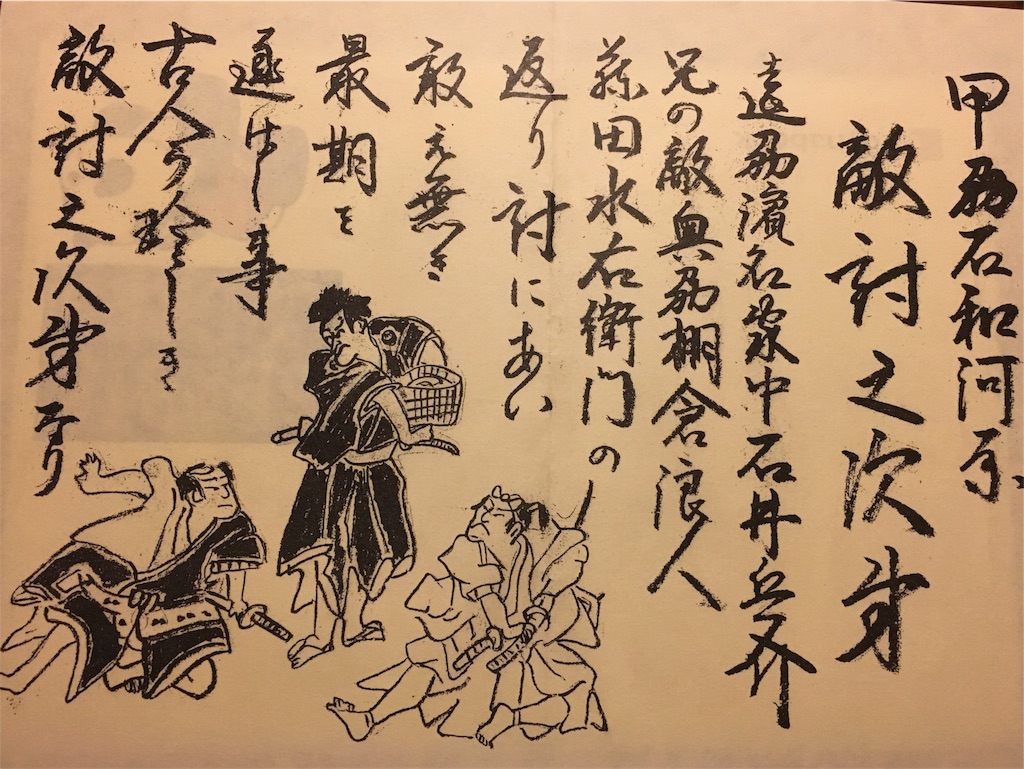 甲刕石和河原
敵討之次第
遠刕濱名家中石井兵介
兄の敵奥刕棚倉浪人
藤田水右衛門の
返り討にあい
敢え無き
最期を
遂げし事
古今珍しき
敵討之次第なり